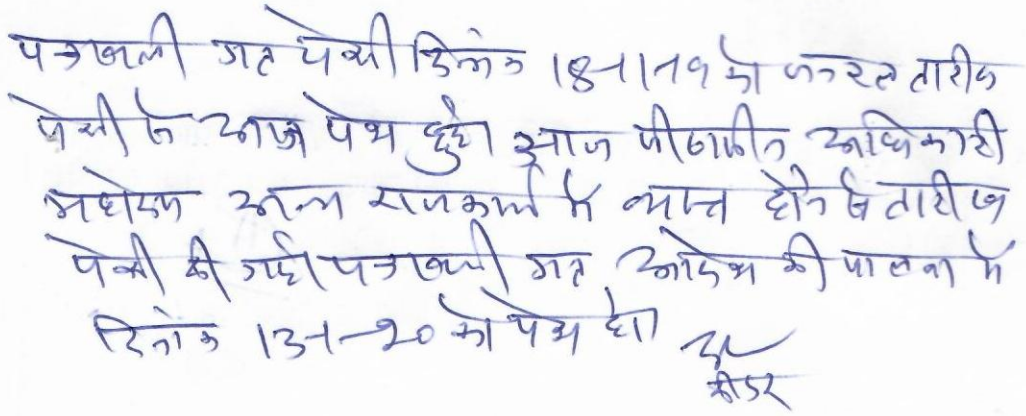 पत्रावली गत पेशी दिनांक 18-11-19 को फकत तारीख
पेशी से आज पेश हुई। आज पीठासीन अधिकारी
महोदय अन्य राजकार्य में व्यस्त होने से तारीख
पेशी की गई। पत्रावली गत आदेश की पालना में
दिनांक 13-1-20 को पेश हो।
रीडर